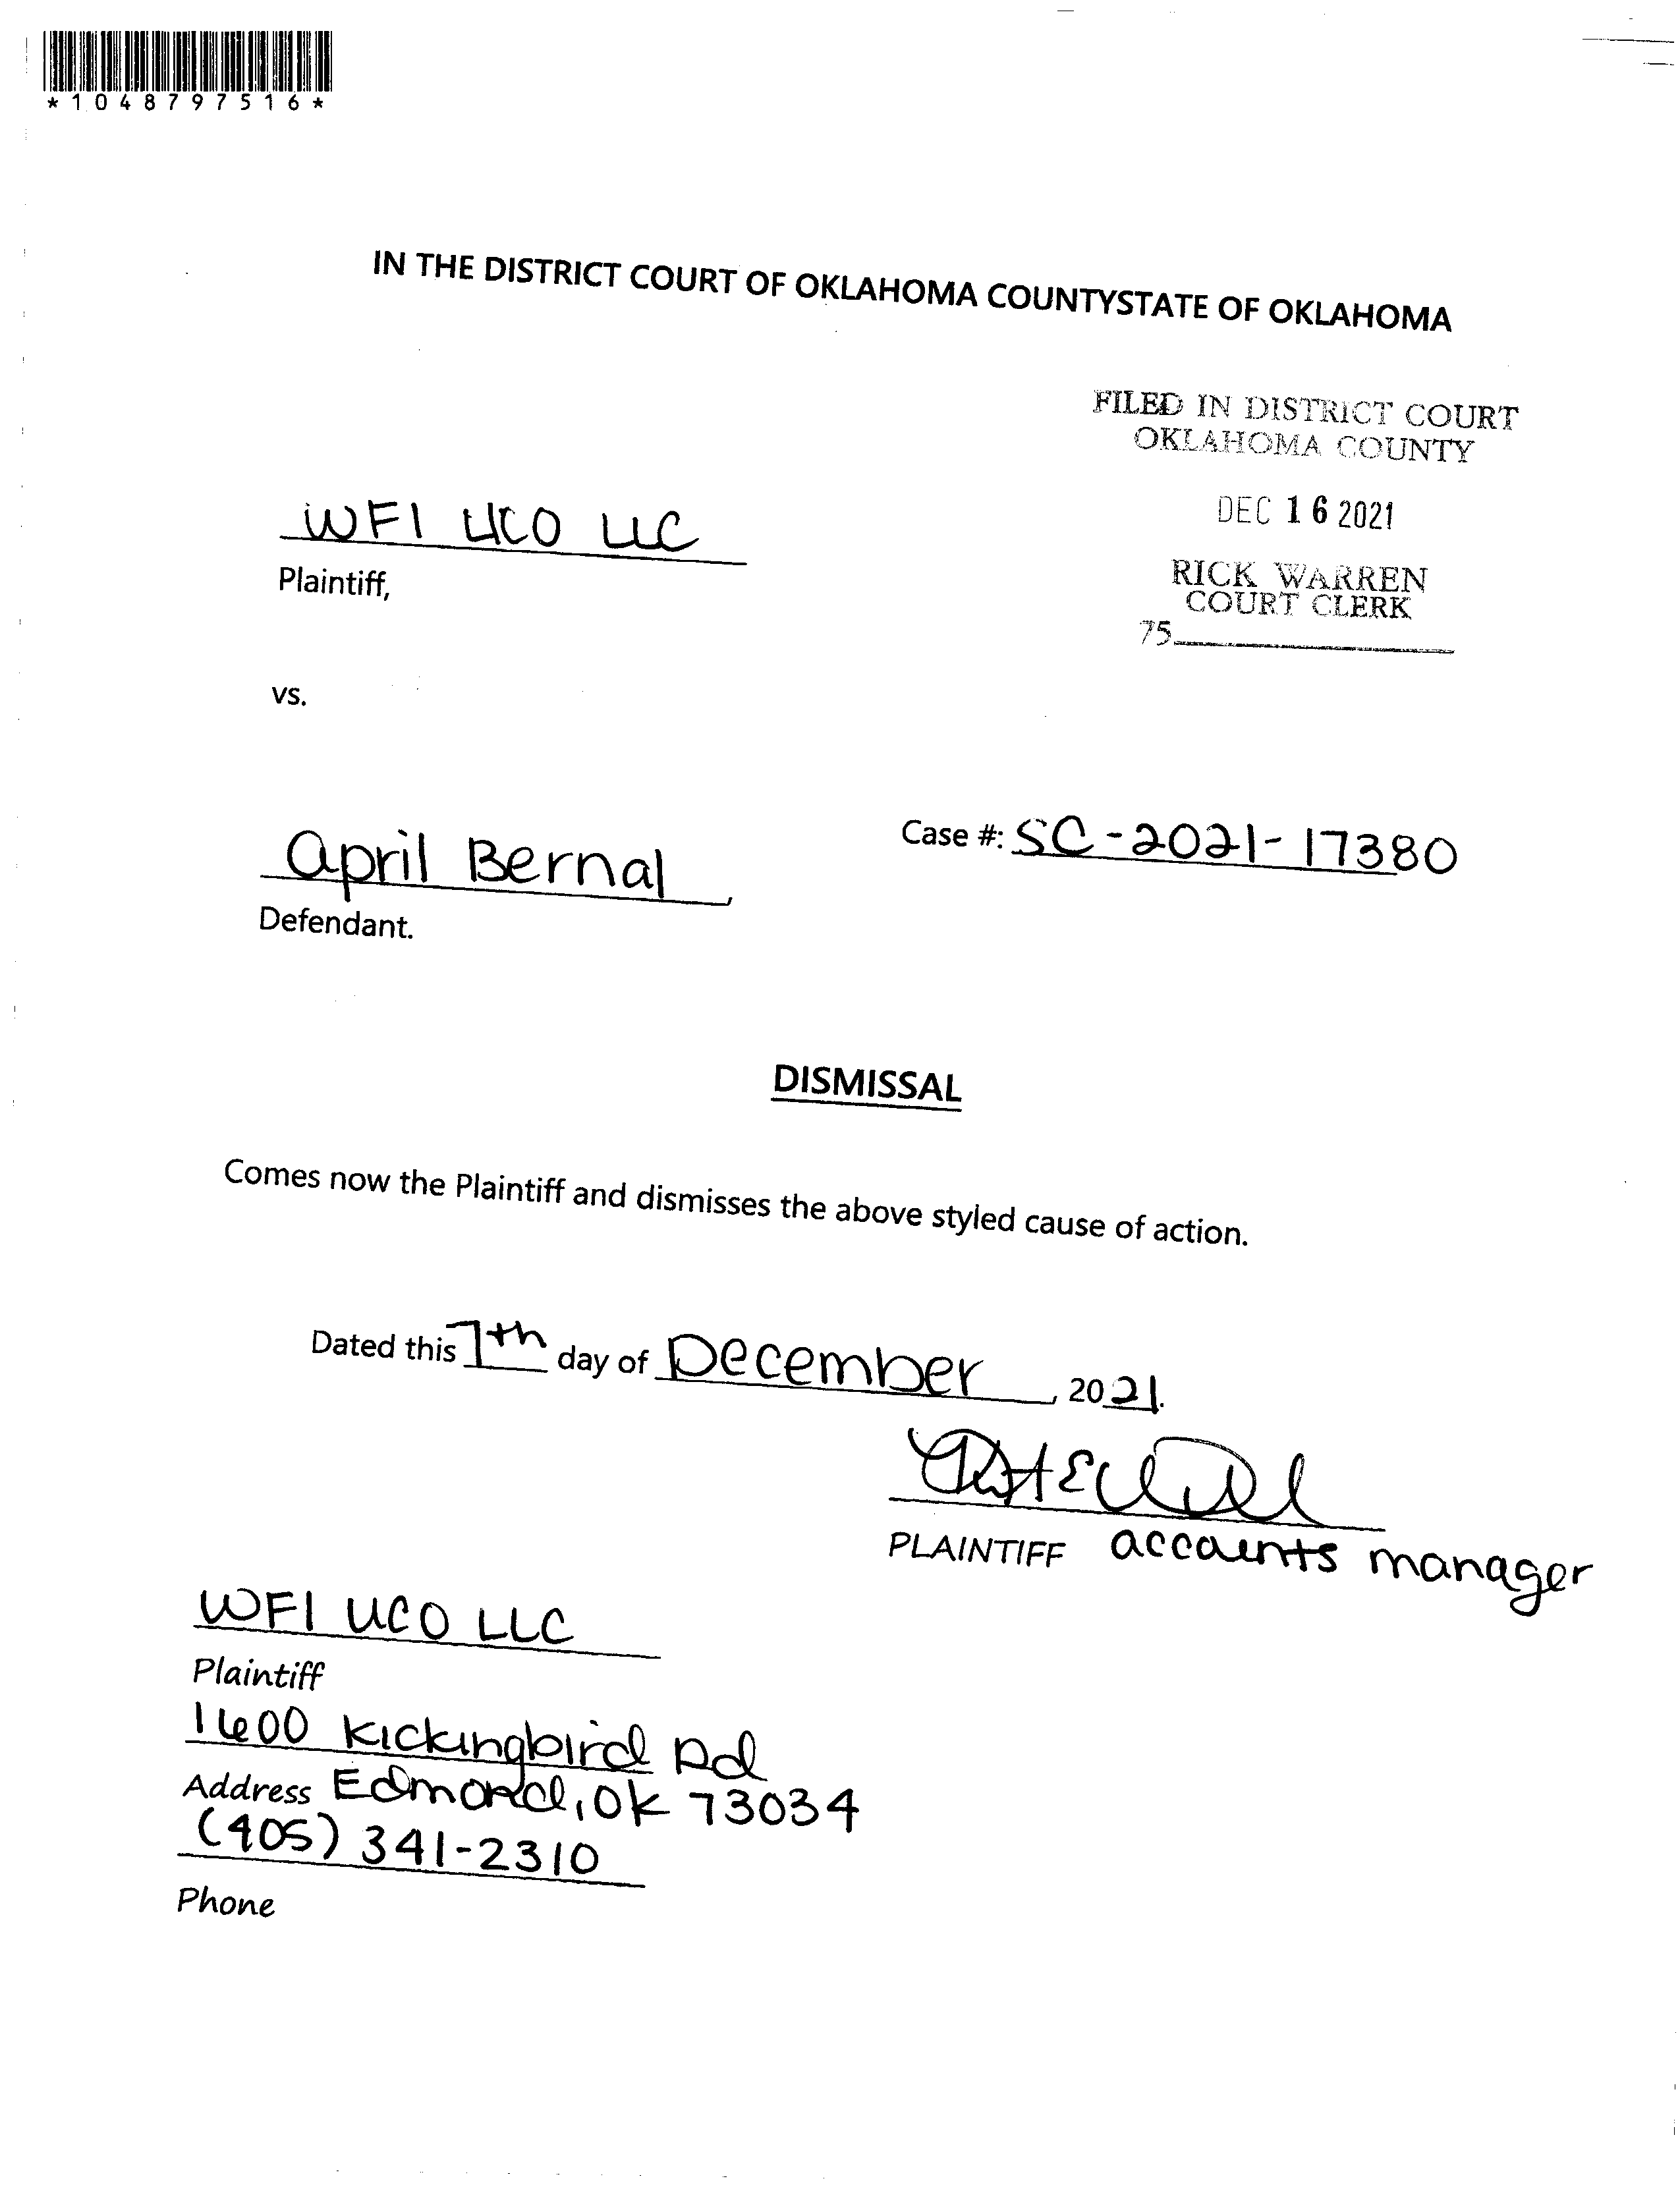 *1048797516*
IN THE DISTRICT COURT OF OKLAHOMA COUNTYSTATE OF OKLAHOMA
FILED IN DISTRICT COURT
OKLAHOMA COUNTY
DEC 16 2021
RICK WARREN
COURT CLERK
75
WFI UCO LLC
Plaintiff,
vs.
April Bernal,
Defendant.
Case #: SC-2021-17380
DISMISSAL
Comes now the Plaintiff and dismisses the above styled cause of action.
Dated this 7th day of December, 2021.
PLAINTIFF accounts manager
WFI UCO LLC
Plaintiff
1600 Kickingbird Rd
Address Edmond, OK 73034
(405) 341-2310
Phone